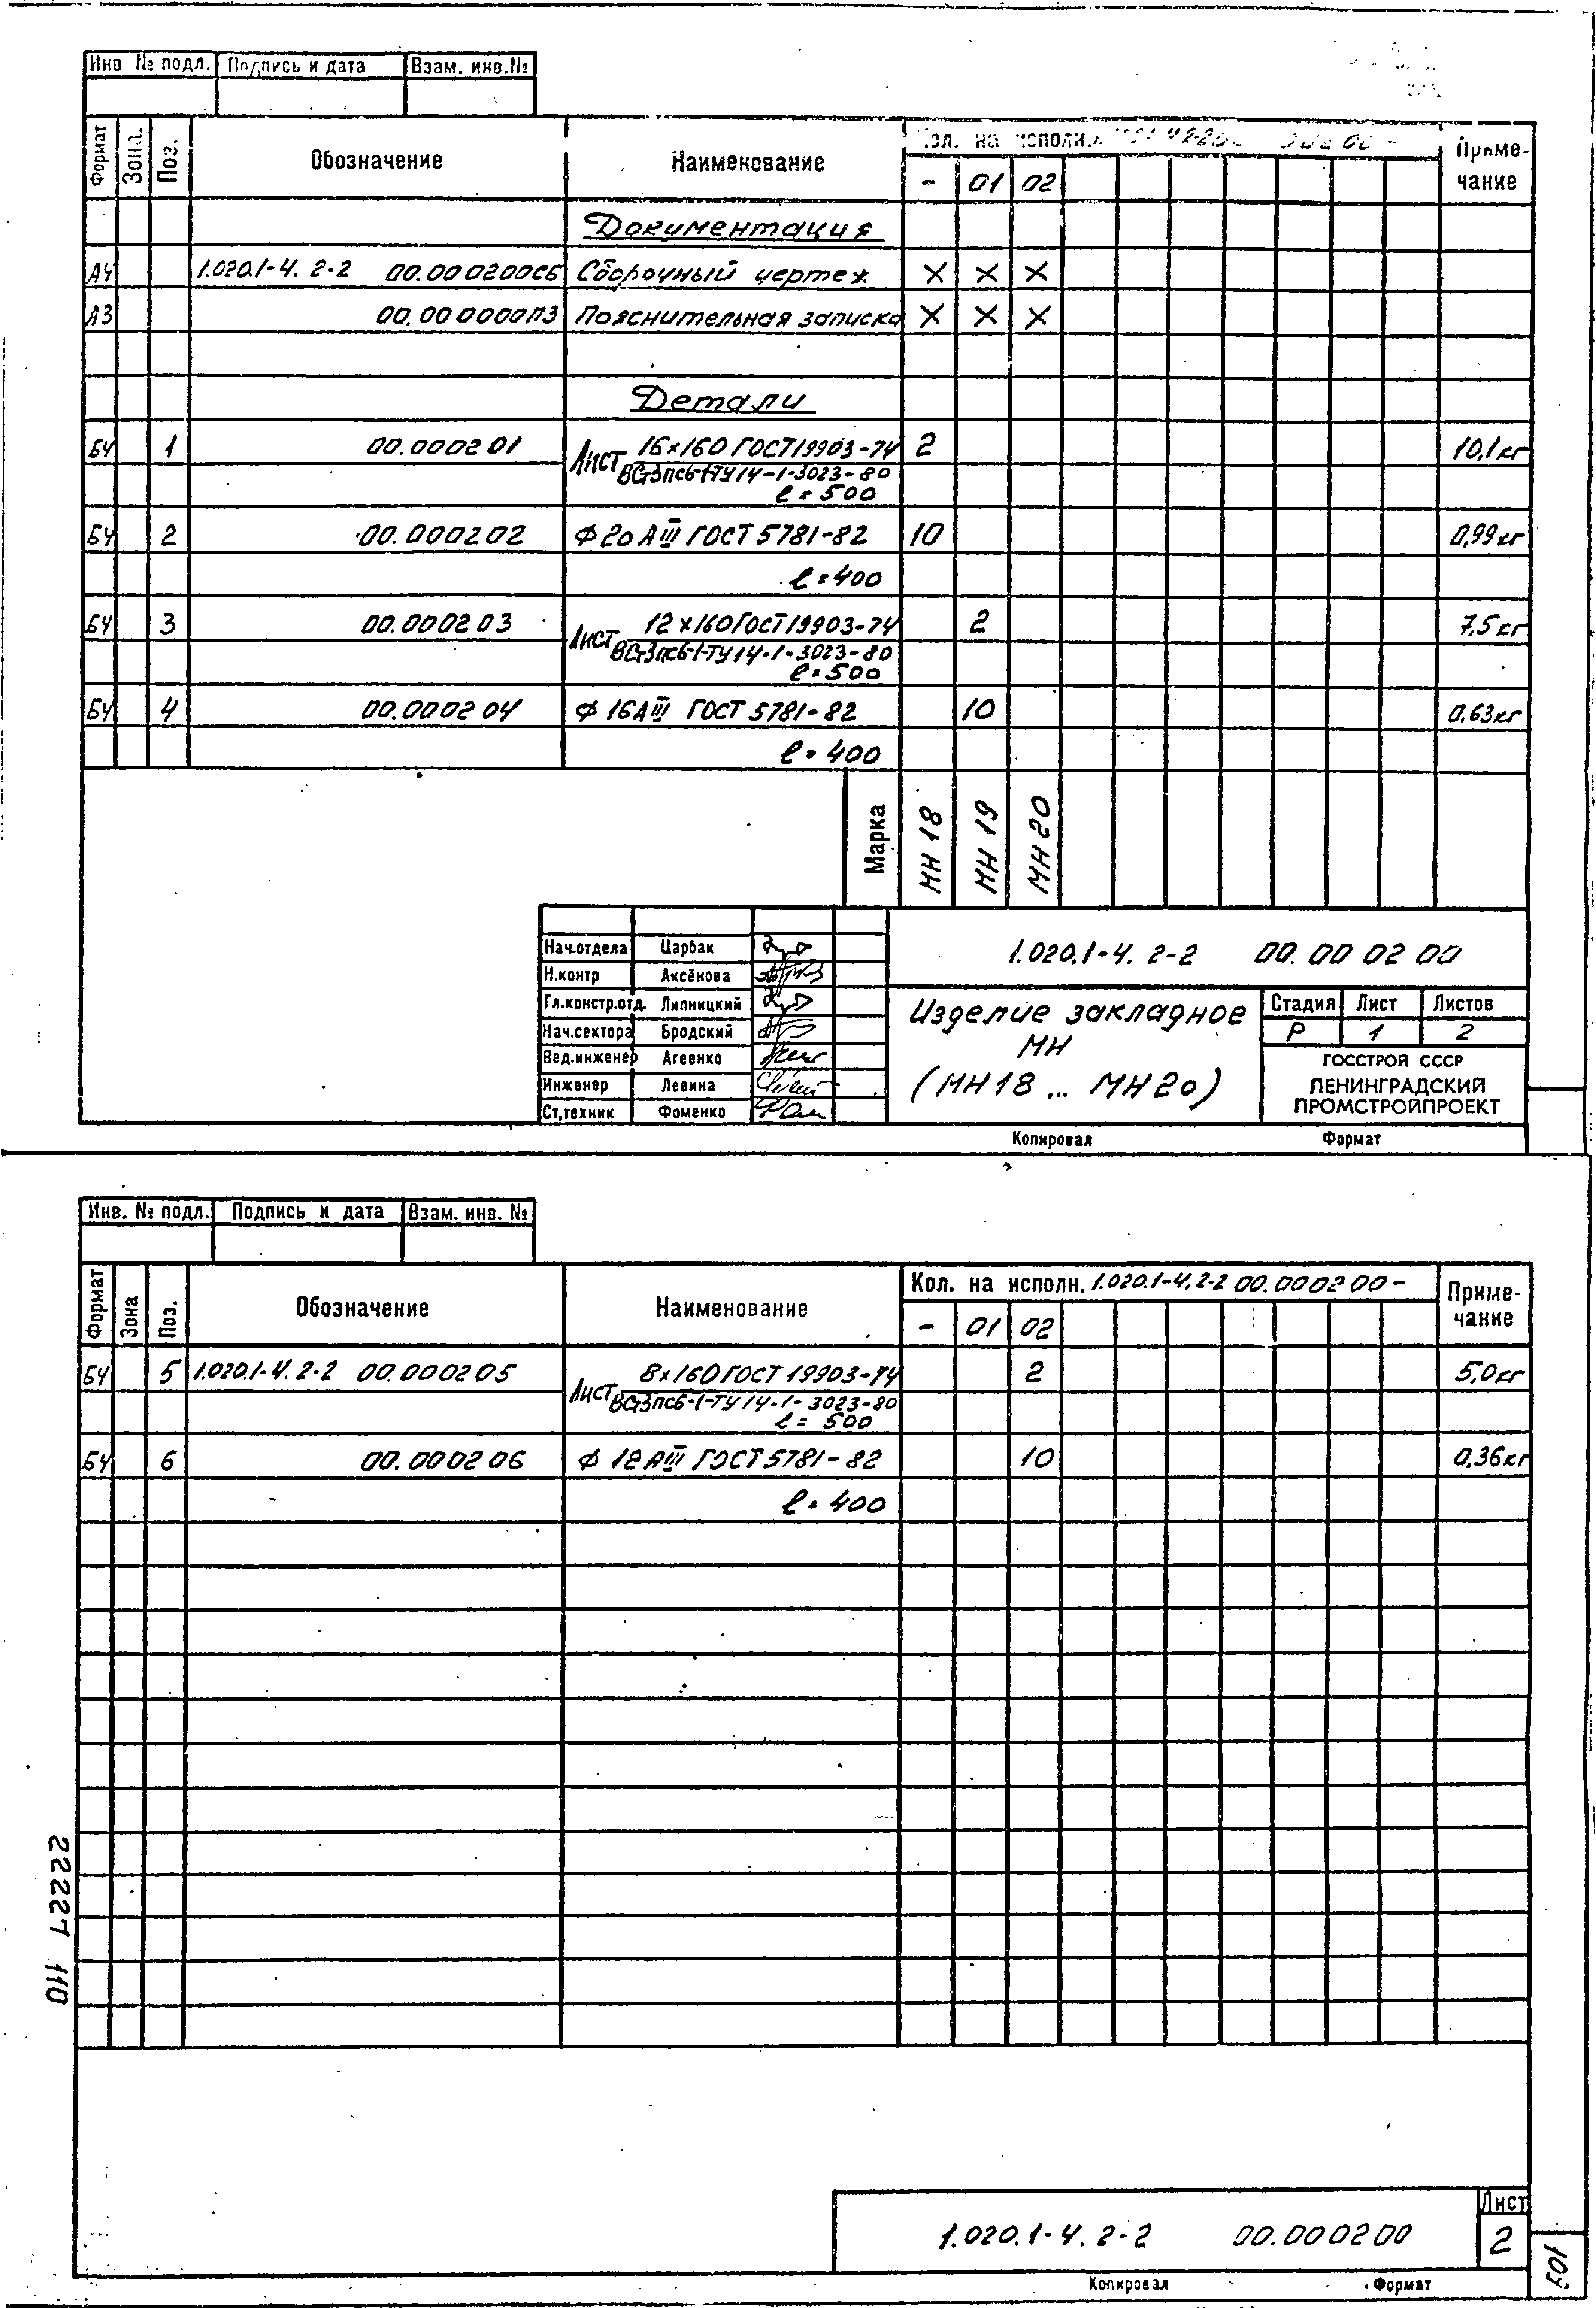 Инв № подл. Подпись и дата Взам. инв.№
Формат Зона. Поз. Обозначение Наименование Кол. на исполн. Приме-
чание
- 01 02
Документация
А4 1.020.1-4. 2-2 00.000200СБ Сборочный чертеж × × ×
А3 00.000000ПЗ Пояснительная записка × × ×
Детали
БЧ 1 00.000201 Лист 16×160 ГОСТ19903-74 2 10,1кг
ВСт3пс6-1-ТУ14-1-3023-80
ℓ=500
БЧ 2 00.000202 Ф20АIII ГОСТ 5781-82 10 0,99кг
ℓ=400
БЧ 3 00.000203 Лист 12×160ГОСТ19903-74 2 7,5кг
ВСт3пс6-1-ТУ14-1-3023-80
ℓ=500
БЧ 4 00.000204 Ф16АIII ГОСТ 5781-82 10 0,63кг
ℓ=400
Марка МН 18 МН 19 МН 20
Нач.отдела Царбак
Н.контр Аксёнова
Гл.констр.отд. Липницкий
Нач.сектора Бродский
Вед.инженер Агеенко
Инженер Левина
Ст,техник Фоменко
1.020.1-4. 2-2 00.00 02 00
Изделие закладное
МН
(МН18 ... МН20)
Стадия Лист Листов
Р 1 2
ГОССТРОЙ СССР
ЛЕНИНГРАДСКИЙ
ПРОМСТРОЙПРОЕКТ
Копировал Формат
Инв. № подл. Подпись и дата Взам. инв. №
Формат Зона Поз. Обозначение Наименование Кол. на исполн. 1.020.1-4.2-2 00.000200- Приме-
чание
- 01 02
БЧ 5 1.020.1-4.2-2 00.000205 Лист 8×160ГОСТ 19903-74 2 5,0кг
ВСт3пс6-1-ТУ14-1-3023-80
ℓ=500
БЧ 6 00.000206 Ф12АIII ГОСТ5781-82 10 0,36кг
ℓ=400
22227 110
1.020.1-4. 2-2 00.000200
Лист
2
Копировал Формат
109